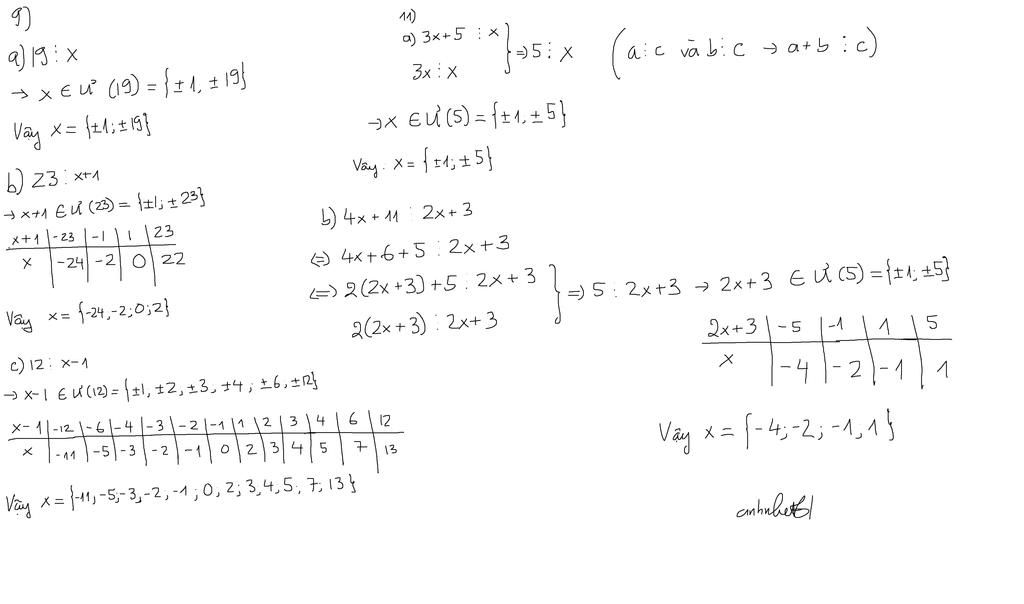 9)
a) 19 ⋮ x
→ x ∈ Ư (19) = {±1, ±19}
Vậy x = {±1; ±19}
b) 23 ⋮ x+1
→ x+1 ∈ Ư (23) = {±1; ±23}
x+1 | -23 | -1 | 1 | 23
x | -24 | -2 | 0 | 22
Vậy x = {-24, -2; 0; 2}
c) 12 ⋮ x-1
→ x-1 ∈ Ư(12) = {±1, ±2, ±3, ±4; ±6, ±12}
x-1 | -12 | -6 | -4 | -3 | -2 | -1 | 1 | 2 | 3 | 4 | 6 | 12
x | -11 | -5 | -3 | -2 | -1 | 0 | 2 | 3 | 4 | 5 | 7 | 13
Vậy x = {-11, -5; -3, -2, -1; 0, 2; 3, 4, 5; 7; 13}
11)
a) 3x+5 ⋮ x
3x ⋮ x
} ⇒ 5 ⋮ x (a ⋮ c và b ⋮ c → a+b ⋮ c)
→ x ∈ Ư(5) = {±1, ±5}
Vậy x = {±1; ±5}
b) 4x + 11 ⋮ 2x+3
⇔ 4x+6+5 ⋮ 2x+3
⇔ 2(2x+3)+5 ⋮ 2x+3
2(2x+3) ⋮ 2x+3
} ⇒ 5 ⋮ 2x+3 → 2x+3 ∈ Ư (5) = {±1, ±5}
2x+3 | -5 | -1 | 1 | 5
x | -4 | -2 | -1 | 1
Vậy x = {-4; -2; -1, 1}